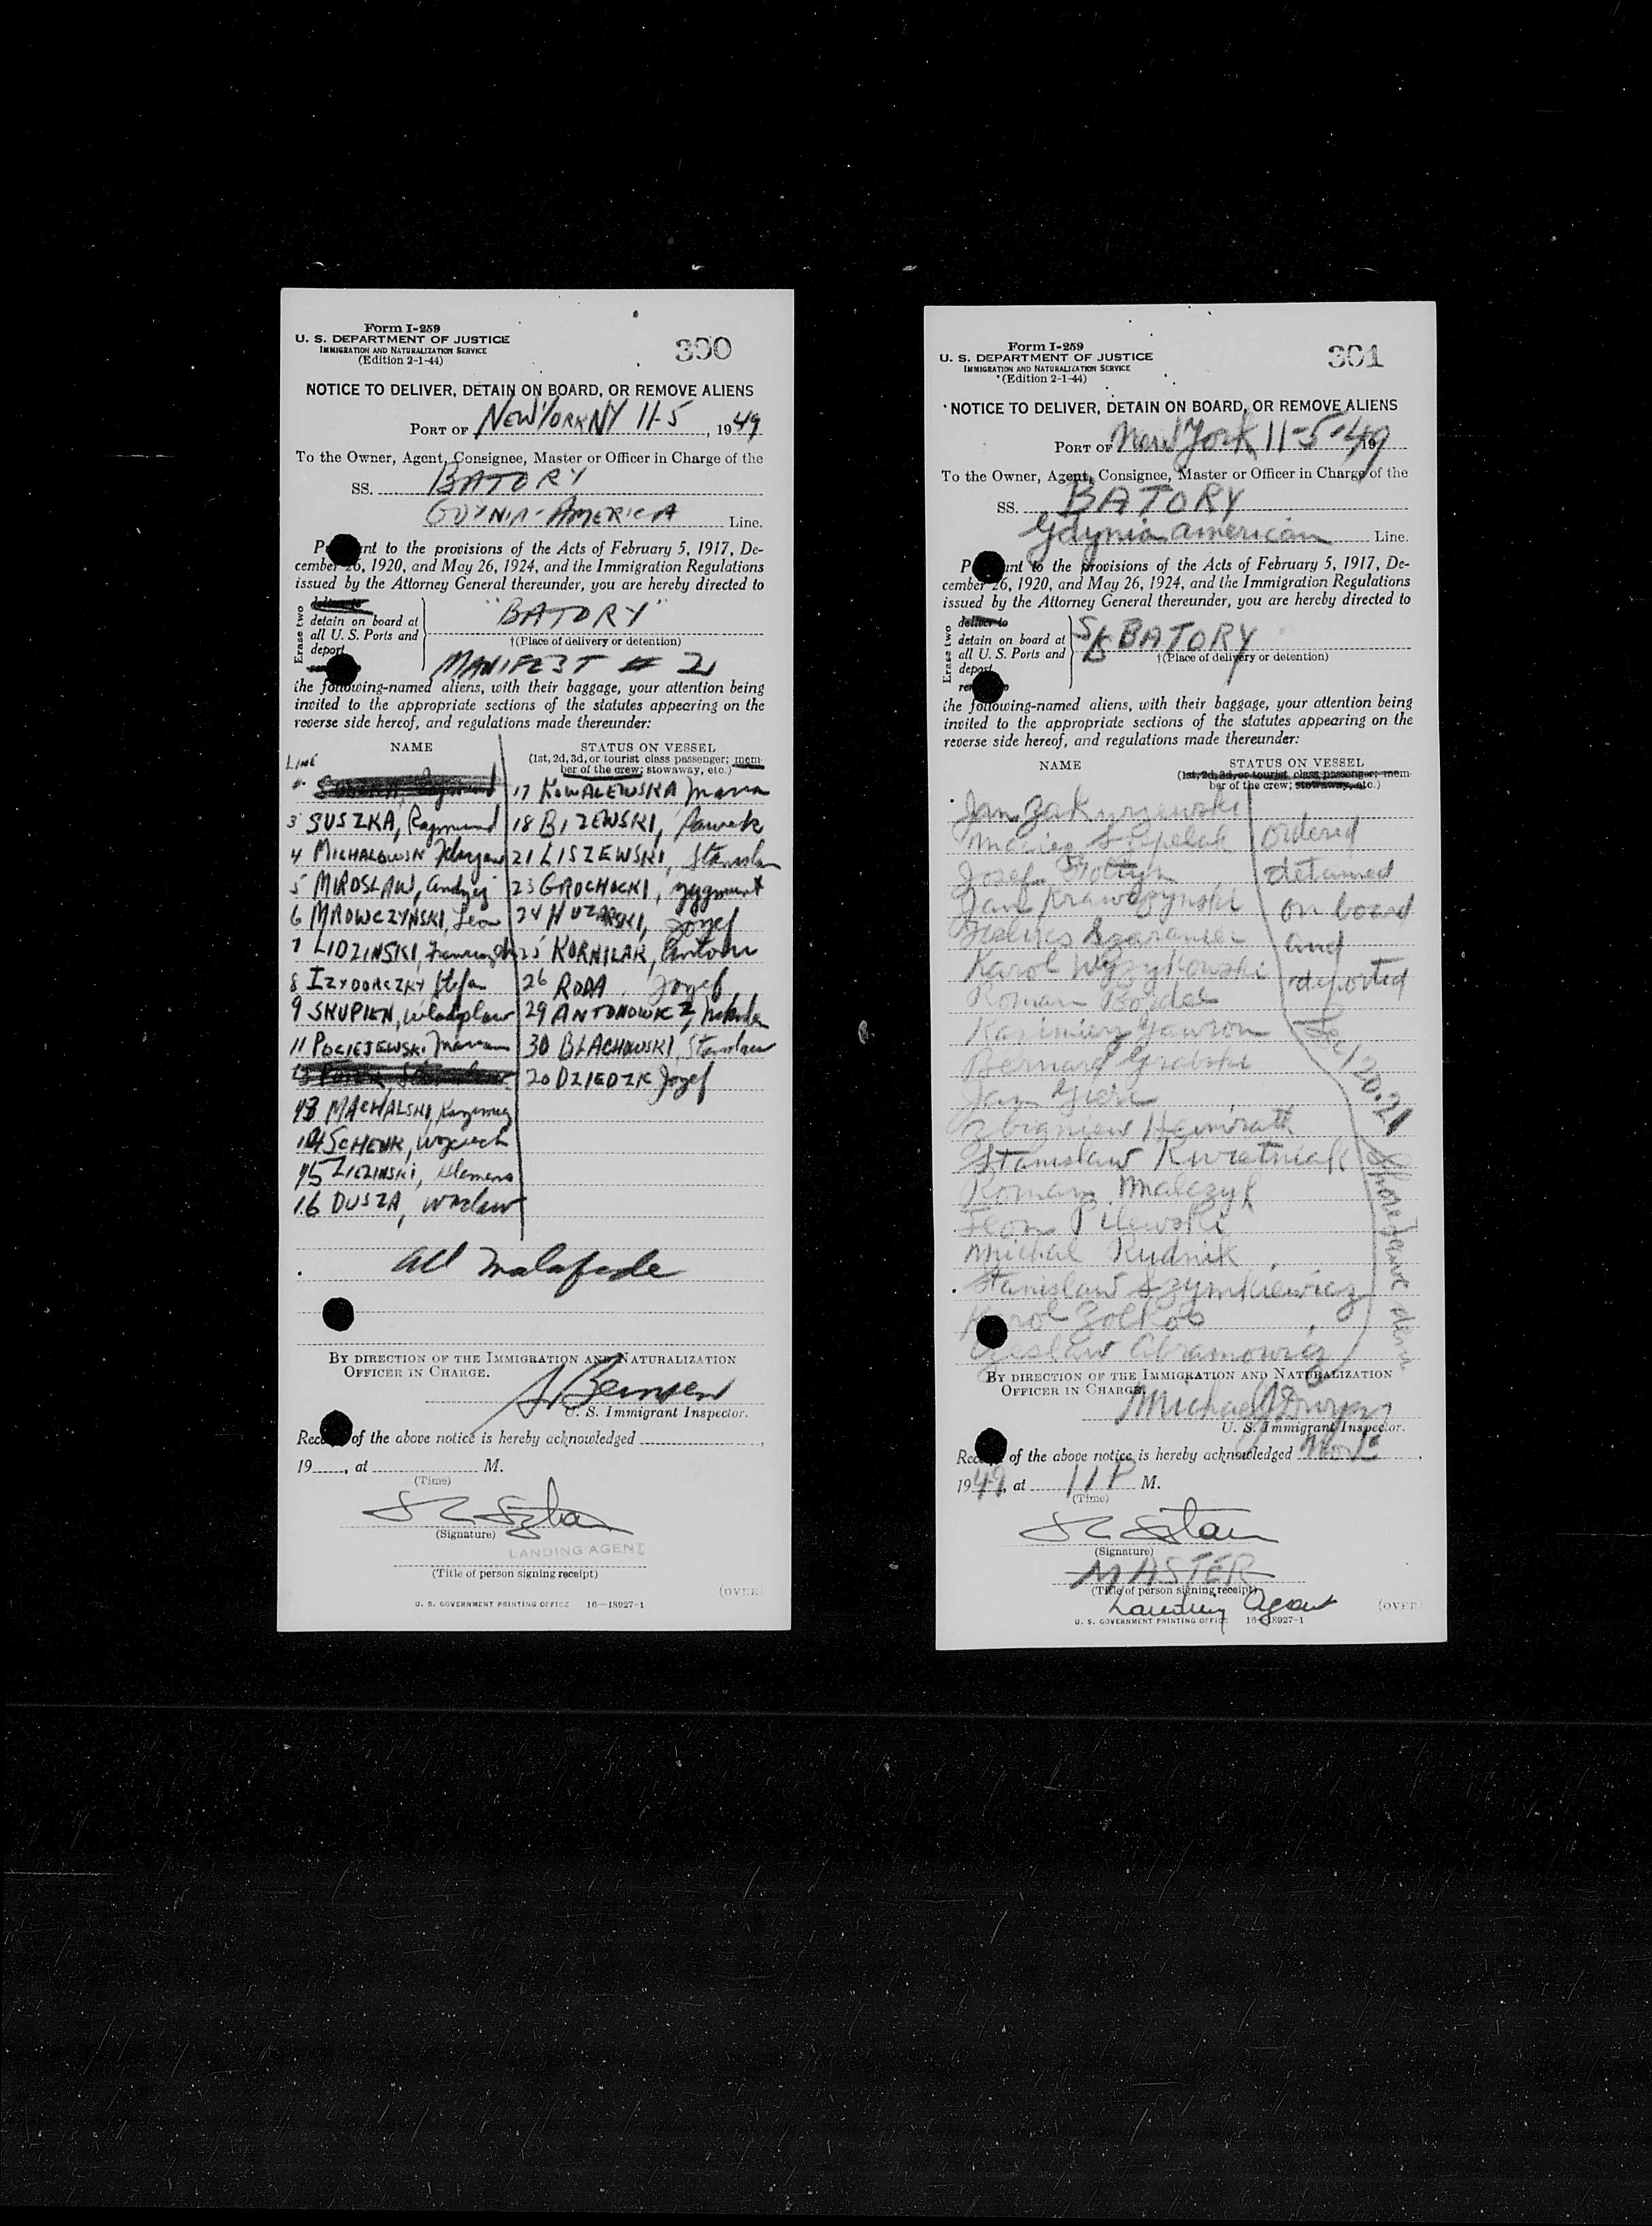 Form I-259
U. S. DEPARTMENT OF JUSTICE
IMMIGRATION AND NATURALIZATION SERVICE
(Edition 2-1-44)
300
NOTICE TO DELIVER, DETAIN ON BOARD, OR REMOVE ALIENS
PORT OF NEW YORK NY 11-5, 1949
To the Owner, Agent, Consignee, Master or Officer in Charge of the
SS. BATORY
GDYNIA-AMERICA Line.
nt to the provisions of the Acts of February 5, 1917, De-
cember 26, 1920, and May 26, 1924, and the Immigration Regulations
issued by the Attorney General thereunder, you are hereby directed to
Erase two
deliver to
detain on board at
all U. S. Ports and
deport
"BATORY"
†(Place of delivery or detention)
MANIFEST # 2
the following-named aliens, with their baggage, your attention being
invited to the appropriate sections of the statutes appearing on the
reverse side hereof, and regulations made thereunder:
NAME STATUS ON VESSEL
(1st, 2d, 3d, or tourist class passenger; mem-
ber of the crew; stowaway, etc.)
LINE
17 KOWALEWSKA Maria
3 SUSZKA, Raymund 18 BIZEWSKI,
4 21 LISZEWSKI, Stanislaw
5 MIROSLAW, Andrzej 23 GROCHOCKI, Zygmunt
6 MROWCZYNSKI, Leon 24 HUZARSKI, Jozef
7 LIDZINSKI, 25 KORNILAK, Antoni
8 IZYDORCZKY Stefan 26 RODA Jozef
9 SKUPIEN, Wladyslaw 29 ANTONOWICZ,
11 POCIEJEWSKI Marian 30 BLACHOWSKI, Stanislaw
20 DZIEDZIC Jozef
13 MACHALSKI, Kazimierz
14 SCHENK, Wojciech
15 ZIEZINSKI, Klemens
16 DUSZA, Waclaw
All malafide
BY DIRECTION OF THE IMMIGRATION AND NATURALIZATION
OFFICER IN CHARGE.
U. S. Immigrant Inspector.
of the above notice is hereby acknowledged
19 , at M.
(Time)
(Signature)
LANDING AGENT
(Title of person signing receipt)
(OVER)
U. S. GOVERNMENT PRINTING OFFICE 16—18927-1
Form I-259
U. S. DEPARTMENT OF JUSTICE
IMMIGRATION AND NATURALIZATION SERVICE
(Edition 2-1-44)
301
NOTICE TO DELIVER, DETAIN ON BOARD, OR REMOVE ALIENS
PORT OF New York 11-5-49
To the Owner, Agent, Consignee, Master or Officer in Charge of the
SS. BATORY
Gdynia american Line.
unt to the provisions of the Acts of February 5, 1917, De-
cember 26, 1920, and May 26, 1924, and the Immigration Regulations
issued by the Attorney General thereunder, you are hereby directed to
Erase two
deliver to
detain on board at
all U. S. Ports and
deport
S/S BATORY
†(Place of delivery or detention)
the following-named aliens, with their baggage, your attention being
invited to the appropriate sections of the statutes appearing on the
reverse side hereof, and regulations made thereunder:
NAME STATUS ON VESSEL
(1st, 2d, 3d, or tourist class passenger; mem-
ber of the crew; stowaway, etc.)
Jan Zakrzewski
ordered
Jozef detained
Jan Krawczynski on board
and
Karol Wyzykowski deported
Roman
Kazimierz Gawron Sec 120.21
Bernard Grabski
Jan
Zbigniew Heinrath
Stanislaw Kwietniak
Roman Mialczyk Shore leave
Leon Pilewski
Michal Rudnik
Stanislaw Szymkiewicz
Czeslaw Abramowicz
BY DIRECTION OF THE IMMIGRATION AND NATURALIZATION
OFFICER IN CHARGE.
Michael J
U. S. Immigrant Inspector.
of the above notice is hereby acknowledged Nov
1949, at 11 P M.
(Time)
(Signature)
MASTER
(Title of person signing receipt)
Landing Agent
(OVER)
U. S. GOVERNMENT PRINTING OFFICE 16—18927-1